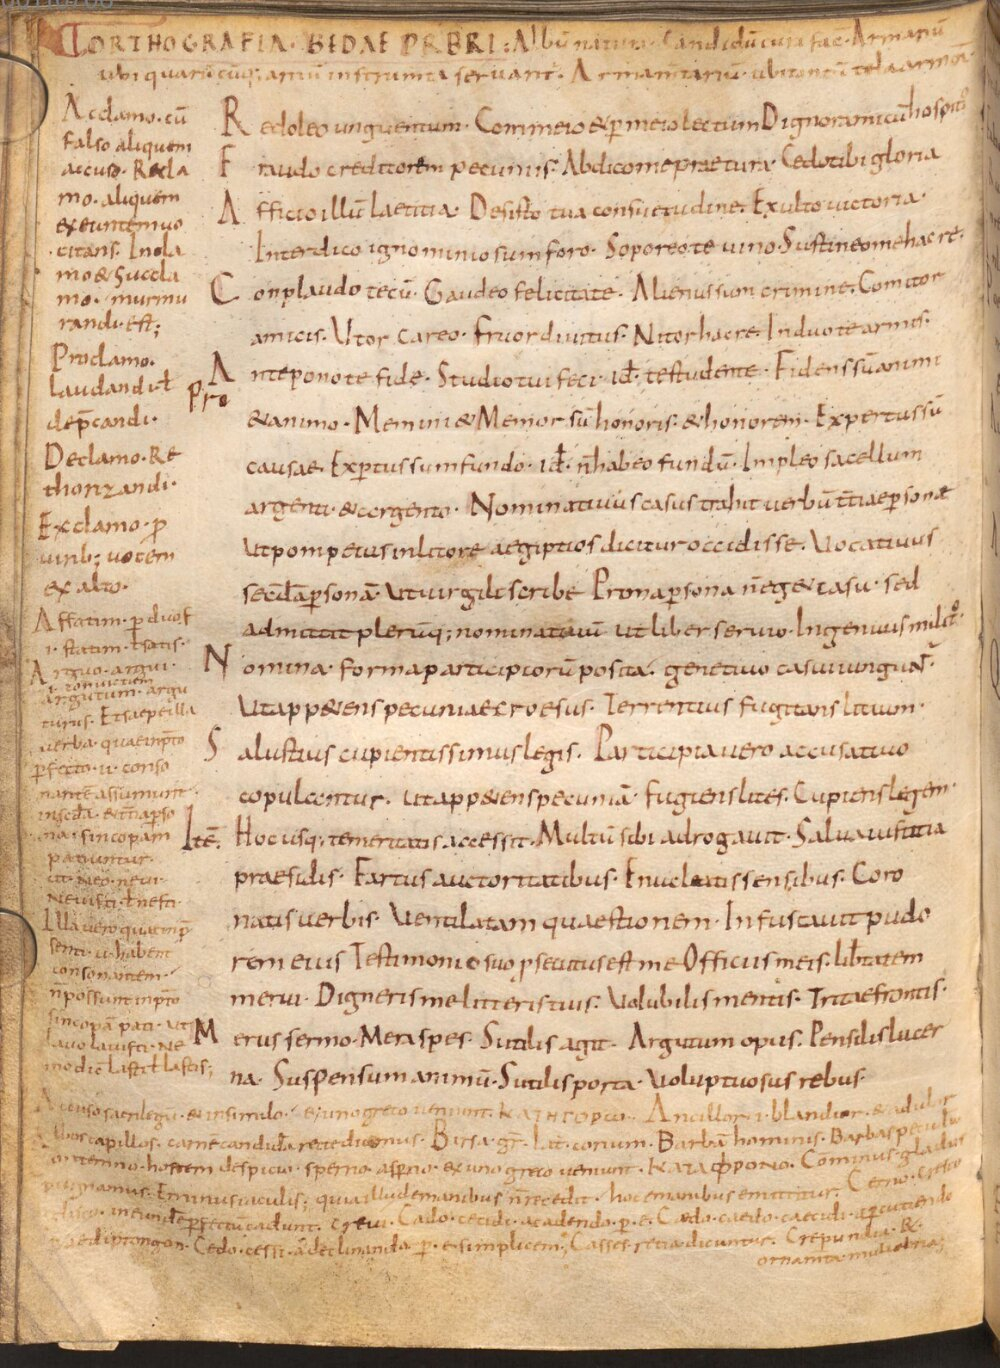 ORTHOGRAFIA · BEDAE PRBRI : Albū natura · Candidū cura fac · Armariū
ubi quarūcūq; artiū instrumta servant · Armamtariū · ubi tantū tela armorū
Acclamo · cū
falso aliquem
accuso · Recla
mo · aliquem
exeuntem uo
citans · Incla
mo & Succla
mo · murmu
randi · est;
Proclamo ·
laudandi ł
dep̄candi ·
Declamo · Re
thorizandi ·
Exclamo · p
uirib; uocem
ex alto ·
Affatim · p duo f
i · statim ·
Arguo · argui ·
i · conuictum
argutum · argu
turus · Et saepe illa
uerba · quae in pto
pfecto · u · conso
nante assumunt ·
in scda · & tia pso
na · sincopam
patiuntur ·
ut · Neo · neui ·
Neuisti · ł nesti ·
Illa uero quae in p
senti · u · habent
consonantem ·
n̄ possunt in pto
sincopā pati · ut
lauo lauisti · Ne
mo dic̄ lasti ł lastis;
Redoleo unguentum · Commeio & pmeio lectum Dignor amicū hospitio
Fraudo creditorem pecuniis · Abdico me praetura · Cedo tibi gloria
Afficio illū laetitia · Desisto tua consuetudine · Exulto uictoria ·
Interdico ignominiosum foro · Soporo te uino · Sustineo me hac re ·
Conplaudo tecū · Gaudeo felicitate · Alienus sum crimine · Comitor
amicis · Utor careo · Fruor diuitiis · Nitor hac re · Induo te armis ·
Antepono te fide · Studio tui feci · id · te studente · Fidens sū animi
Pro
& animo · Memini & Memor sū honoris · & honorem · Expertus sū
causae · Expertus sum fundo · id · n̄ habeo fundū · Impleo sacellum
argenti · & argento · Nominatiuus casus trahit uerbū tiae psonae
Ut pompeius in litore aegiptios dicitur occidisse · Uocatiuus
secūdā psonā · Ut uirgili scribe Prima psona n̄ eget casu · sed
admittit plerūq; nominatiuū ut liber seruio · Ingenuus milito ·
Nomina · forma participiorū posita · genetiuo casui iungunt ·
Ut appetens pecuniae croesus · Terrentius fugitans litium ·
Salustius cupientissimus legis · Participia uero accusatiuo
copulentur · ut appetens pecuniā · fugiens lites · Cupiens legem ·
Itē · Hocusq; temeritatis accessit · Multū sibi adrogauit · Salua iustitia
praesidis · Fartus auctoritatibus · Enucleatis sensibus · Coro
natis uerbis · Uentilatam quaestionem · Infuscauit pudo
rem eius Testimonio suo psecutus est me Officiis meis · libtatem
merui · Digneris me litteris tuis · Uolubilis mentis · Tritae frontis ·
Merus sermo · Mera spes · Sutilis agit · Argutum opus · Pensilis lucer
na · Suspensum animū · Sutilis porta · Uoluptuosus rebus ·
Accuso sacrilegū · & insimulo · ex uno greco ueniunt · ΚΑΤΗΓΟΡω · Ancillor · i · blandior · & adulor
Albos capillos · carnē candidā recte dicimus · Birsa · gr · lat · corium · Barbā hominis · Barbas peculū
Contemno · hostem despicio · sperno · aspno · ex uno greco ueniunt · ΚΑΤΑΦΡΟΝω · Cominus · gladiis
pugnamus · Eminus iaculis; quia illud e manibus n̄ recedit · hoc e manibus emittitur · Cerno · cresco
in eundē pfectū cadunt · creui · Cado · cecidi · a cadendo · p · e · Caedo · caedo · caecidi · a pcutiendo
p ae diptongon · Cedo · cessi · a declinandā · p · e · simplicem; Casses · retia dicuntur · Crepundia · &
ornamta muliebria;